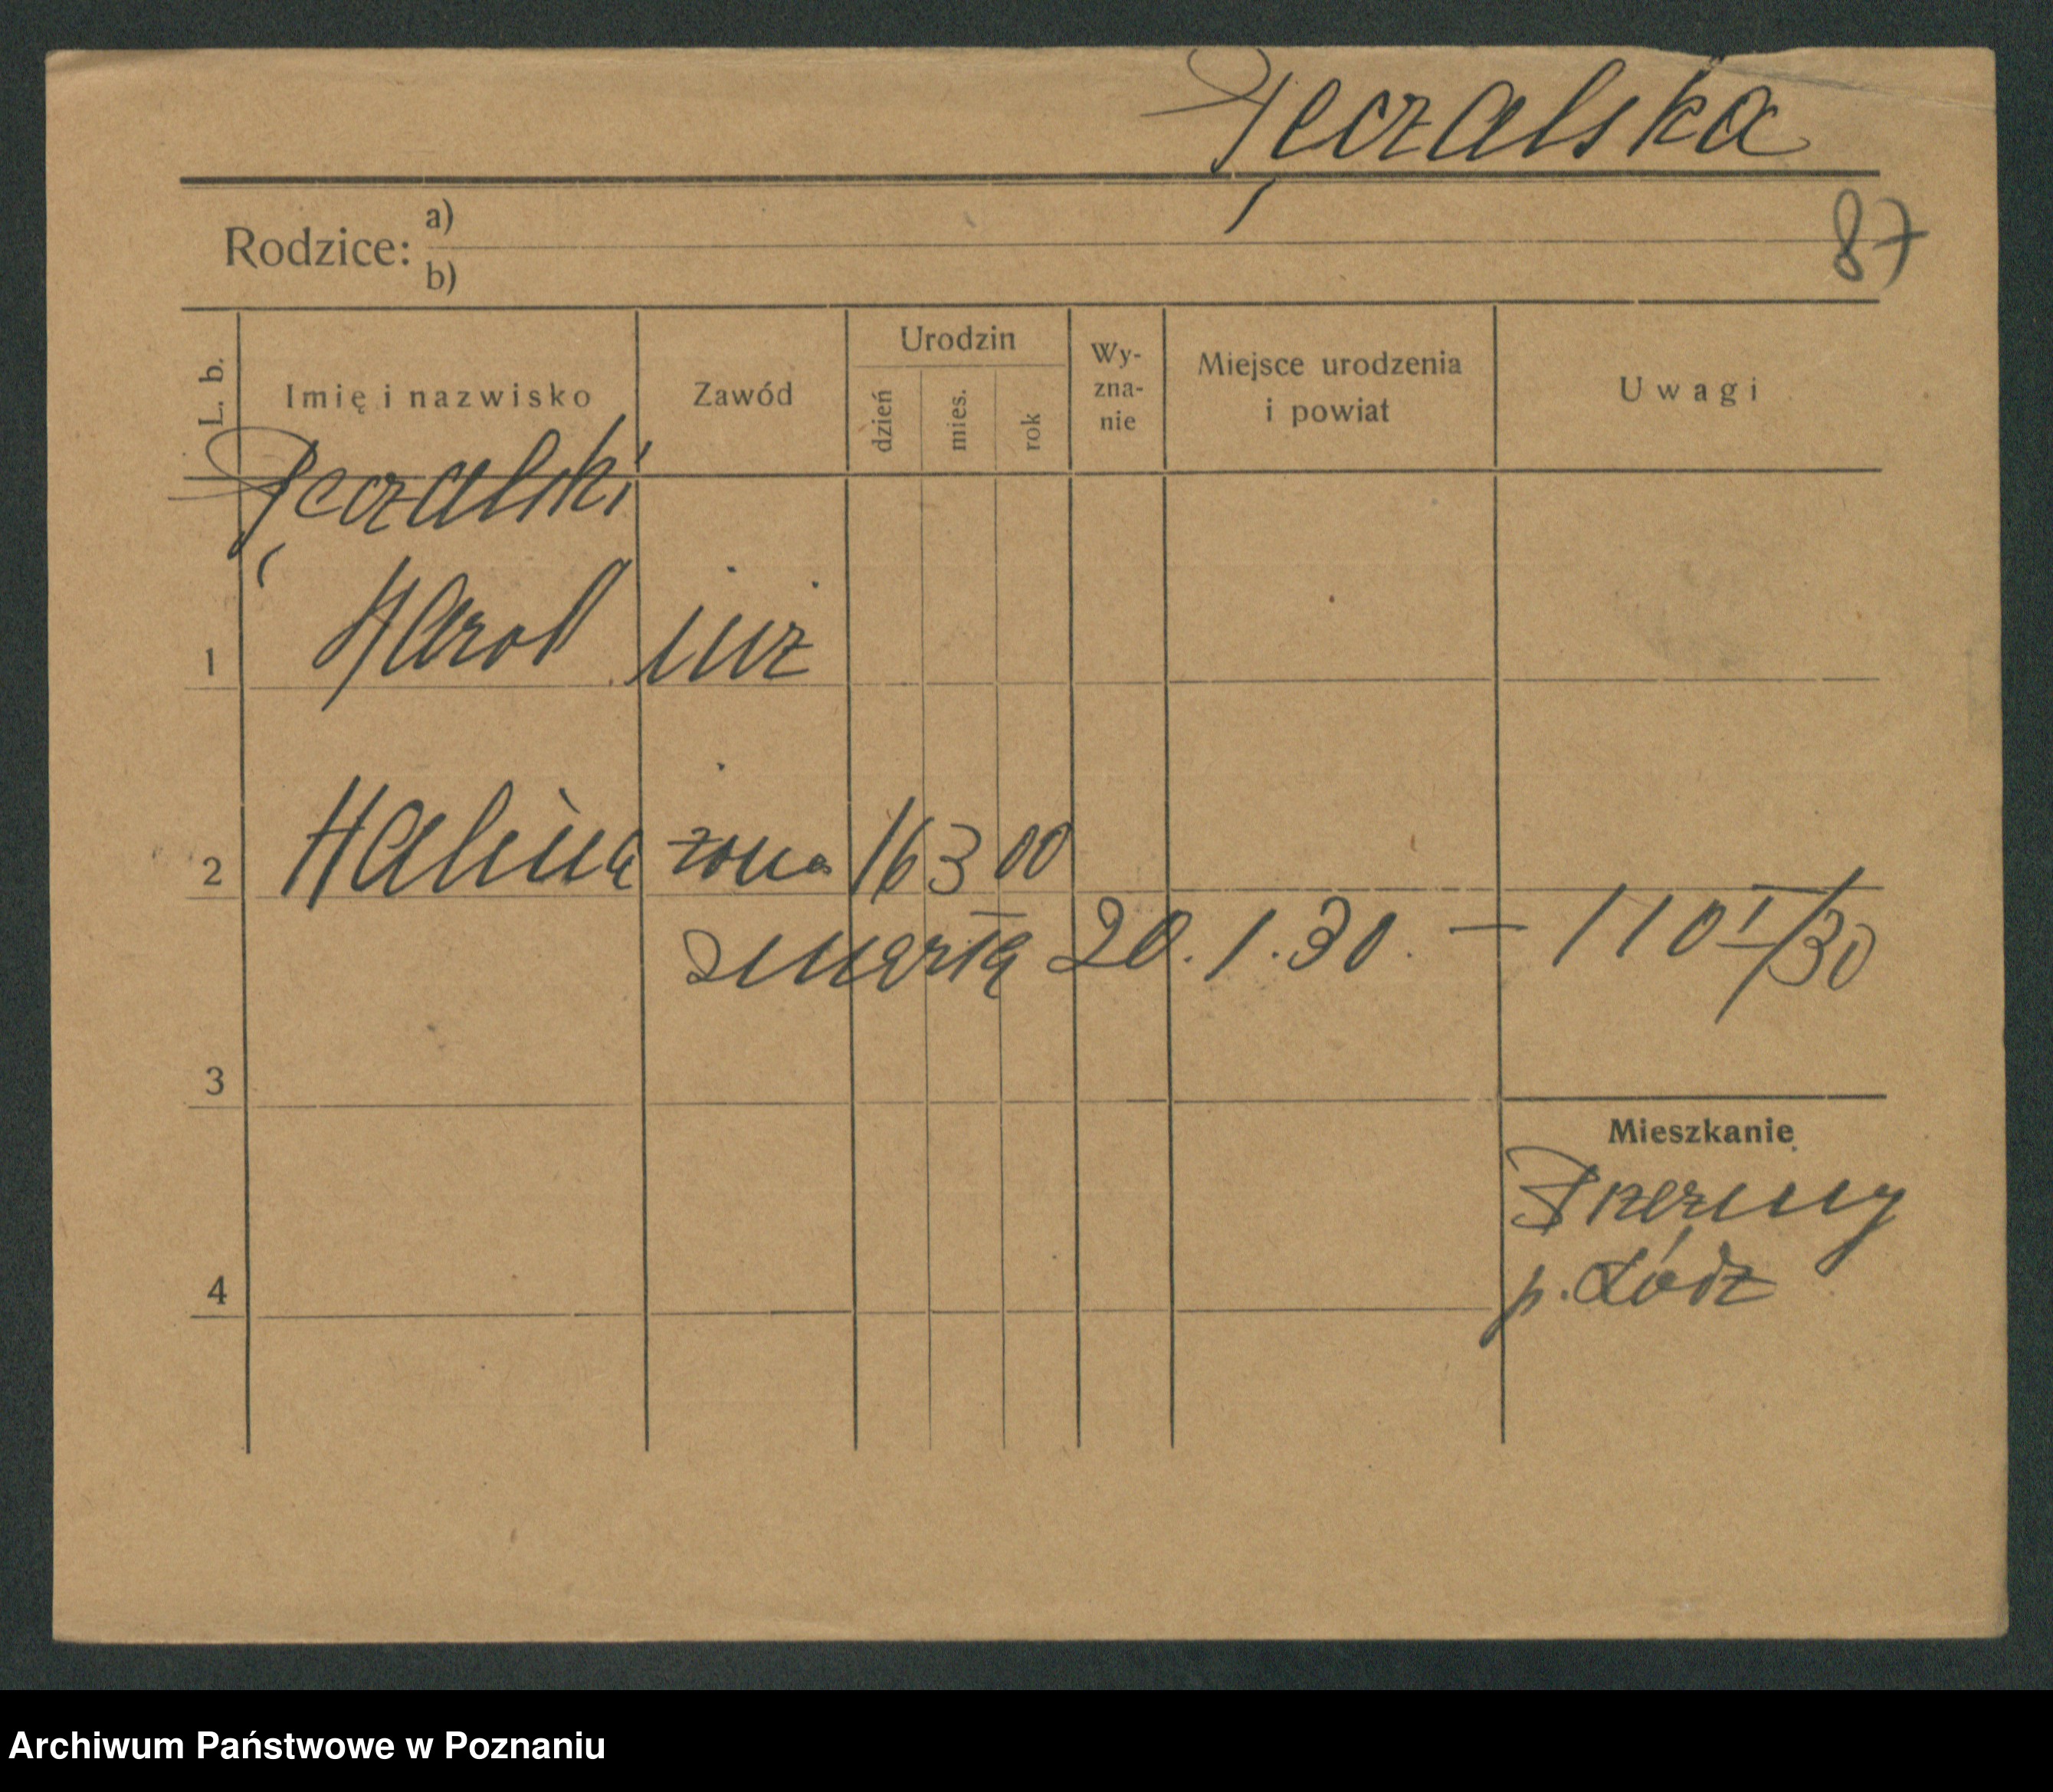 Pęczalska
Rodzice: a)
b)
87
L. b.
Imię i nazwisko
Zawód
Urodzin
dzień
mies.
rok
Wy-
zna-
nie
Miejsce urodzenia
i powiat
Uwagi
Pęczalski
1 Karol inż
2 Halina żona 16 3 00
zmarła 20.1.30. — 110 I/30
3
Mieszkanie
p. Łódź
4
Archiwum Państwowe w Poznaniu